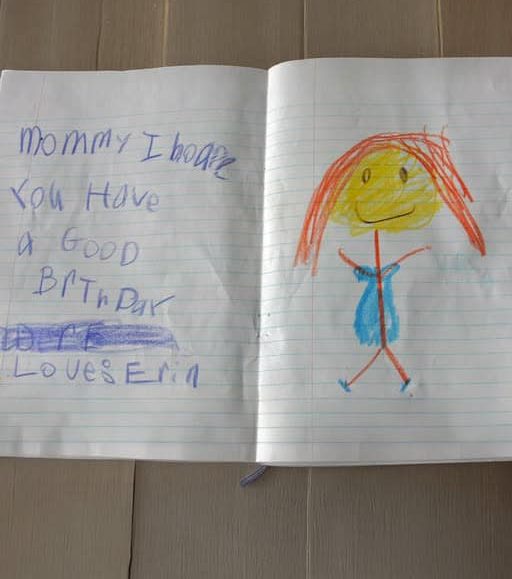 MOMMY I hoape
You Have
a GOOD
BrThDay
Loves Erin